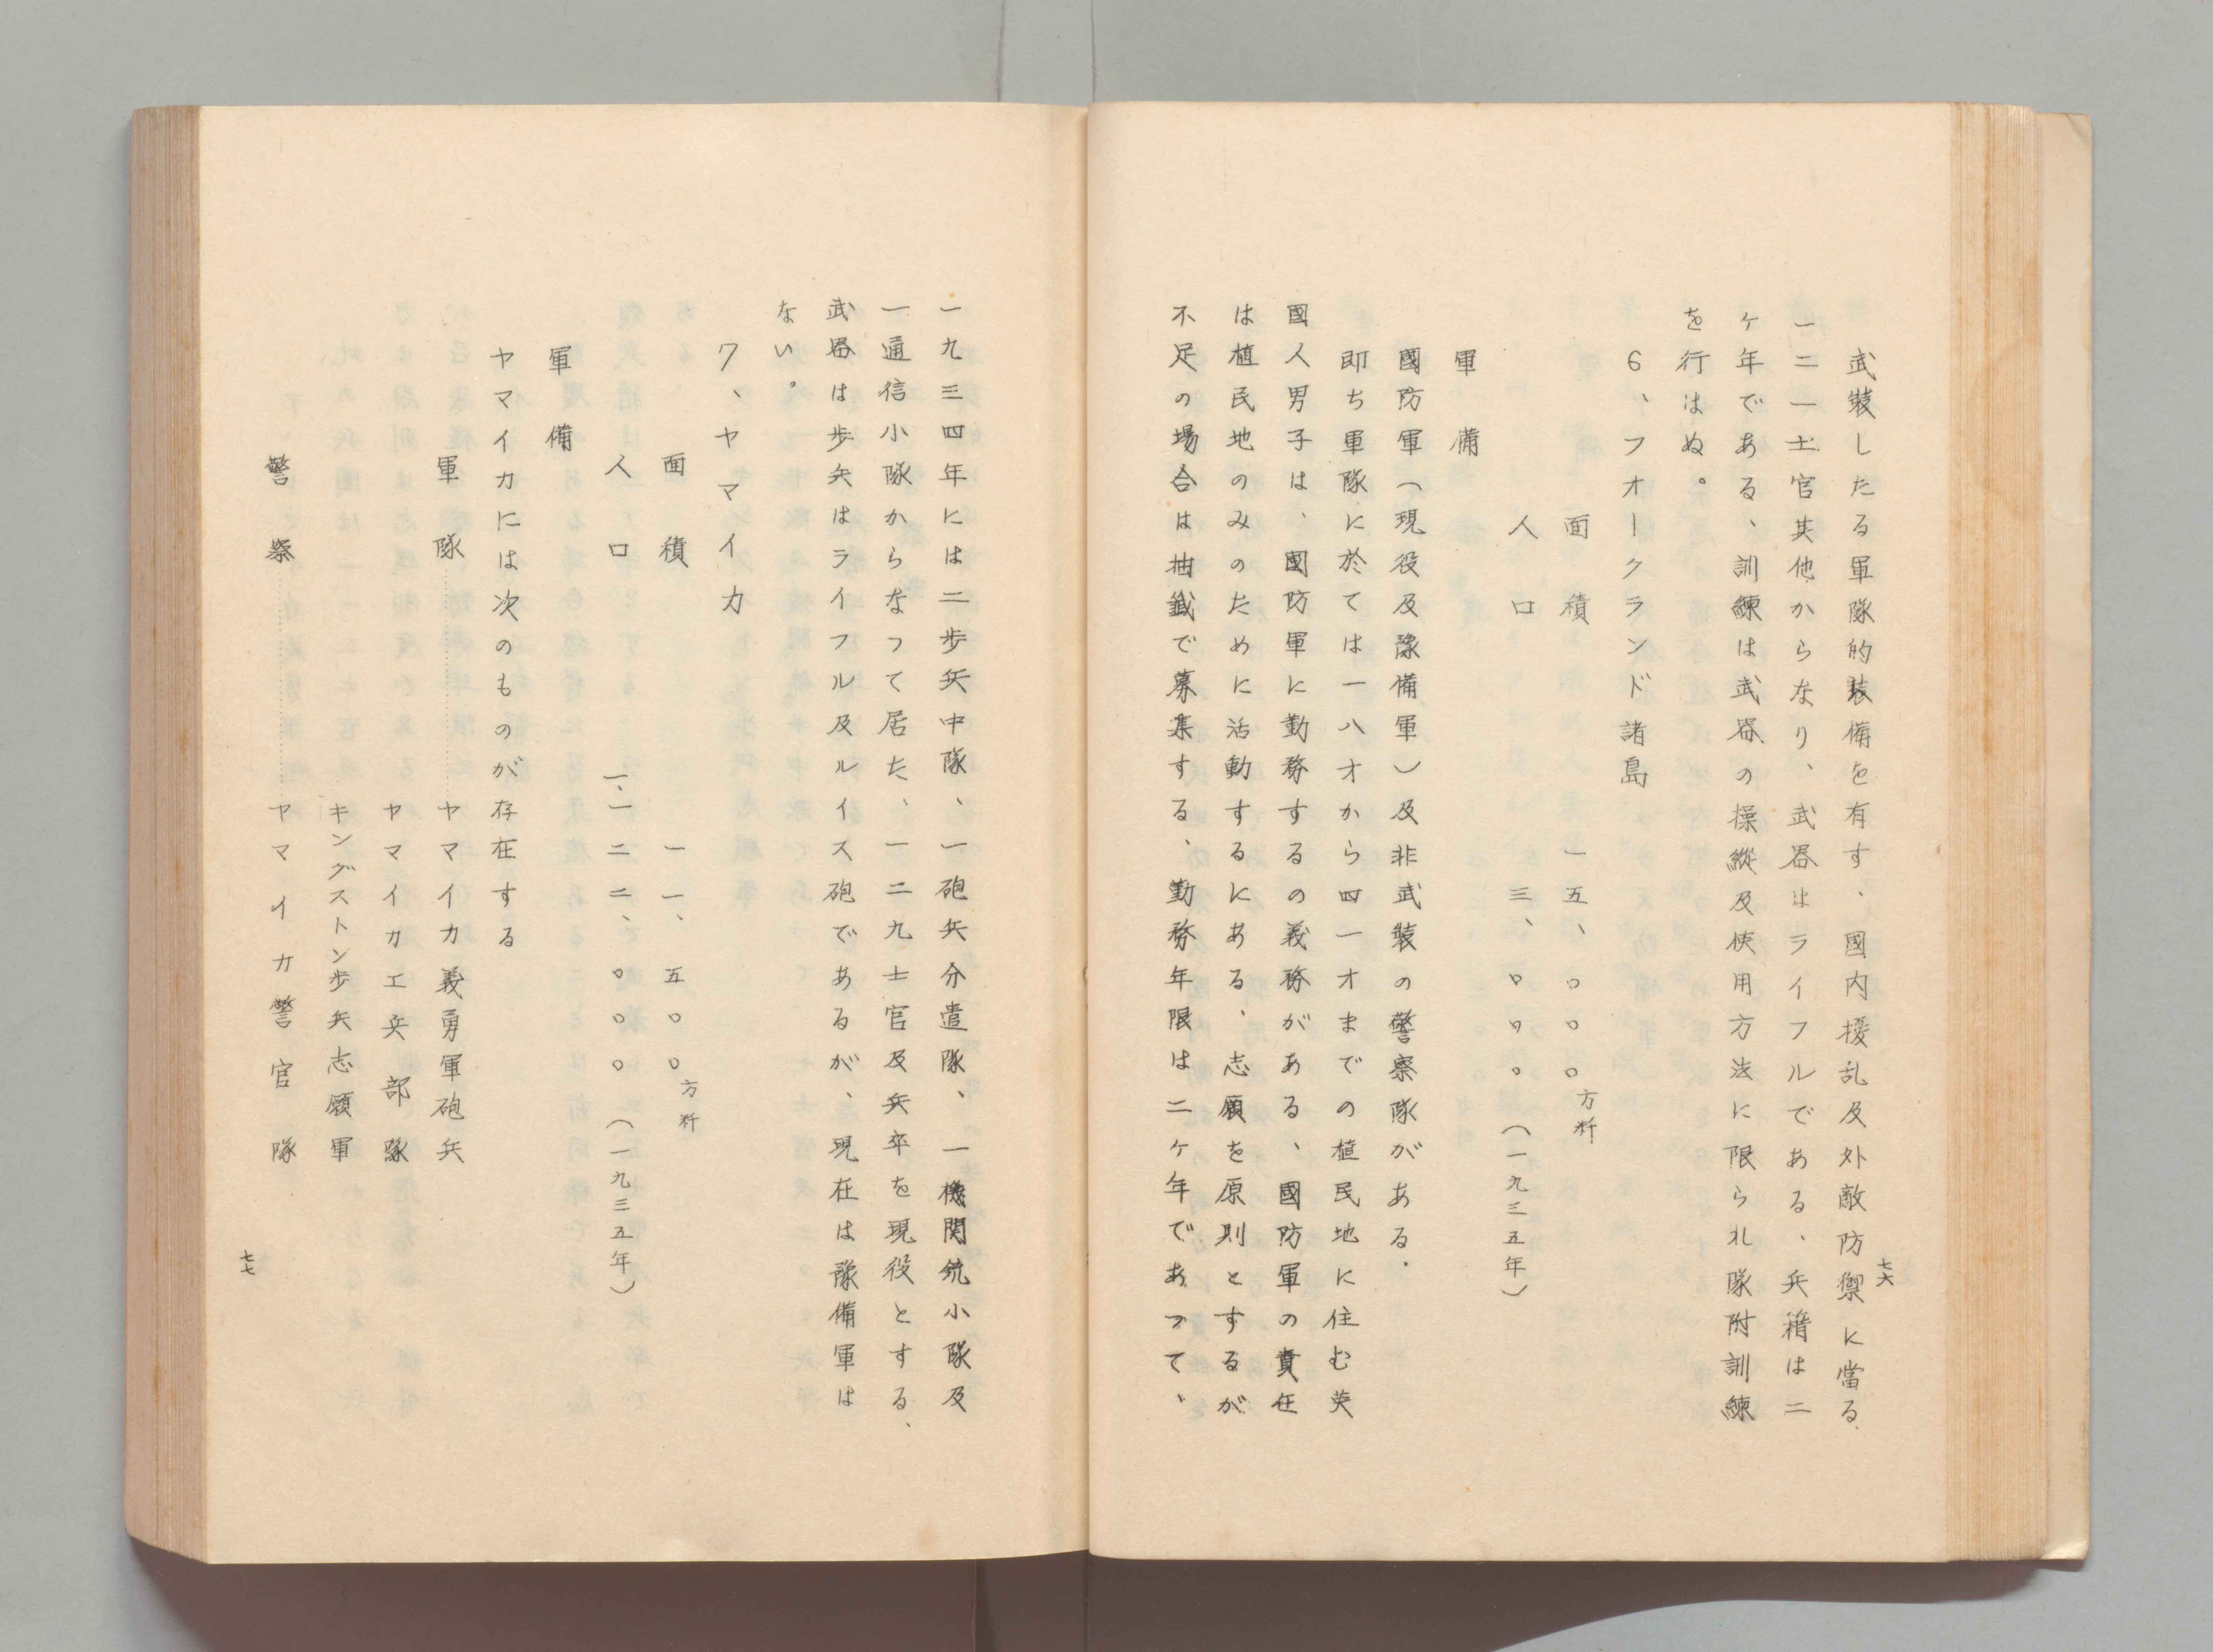 武裝したる軍隊的裝備を有す、國内擾乱及外敵防禦に當る
一二一士官其他からなり、武器はライフルである、兵籍は二
ヶ年である、訓練は武器の操縱及使用方法に限られ隊附訓練
を行はぬ。
6、フオークランド諸島
面積 一五、〇〇〇方粁
人口 三、〇〇〇(一九三五年)
軍備
國防軍(現役及豫備軍)及非武裝の警察隊がある.
即ち軍隊に於ては一八才から四一才までの植民地に住む英
國人男子は、國防軍に勤務するの義務がある、國防軍の責任
は植民地のみのために活動するにある、志願を原則とするが
不足の場合は抽籤で募集する、勤務年限は二ヶ年であつて、
七六
一九三四年には二歩兵中隊、一砲兵分遣隊、一機関銃小隊及
一通信小隊からなつて居た、一二九士官及兵卒を現役とする、
武器は歩兵はライフル及ルイス砲であるが、現在は豫備軍は
ない。
7、ヤマイカ
面積 一一、五〇〇方粁
人口 一、一二二、〇〇〇(一九三五年)
軍備
ヤマイカには次のものが存在する
軍隊……ヤマイカ義勇軍砲兵
ヤマイカエ兵部隊
キングストン歩兵志願軍
警察……ヤマイカ警官隊
七七